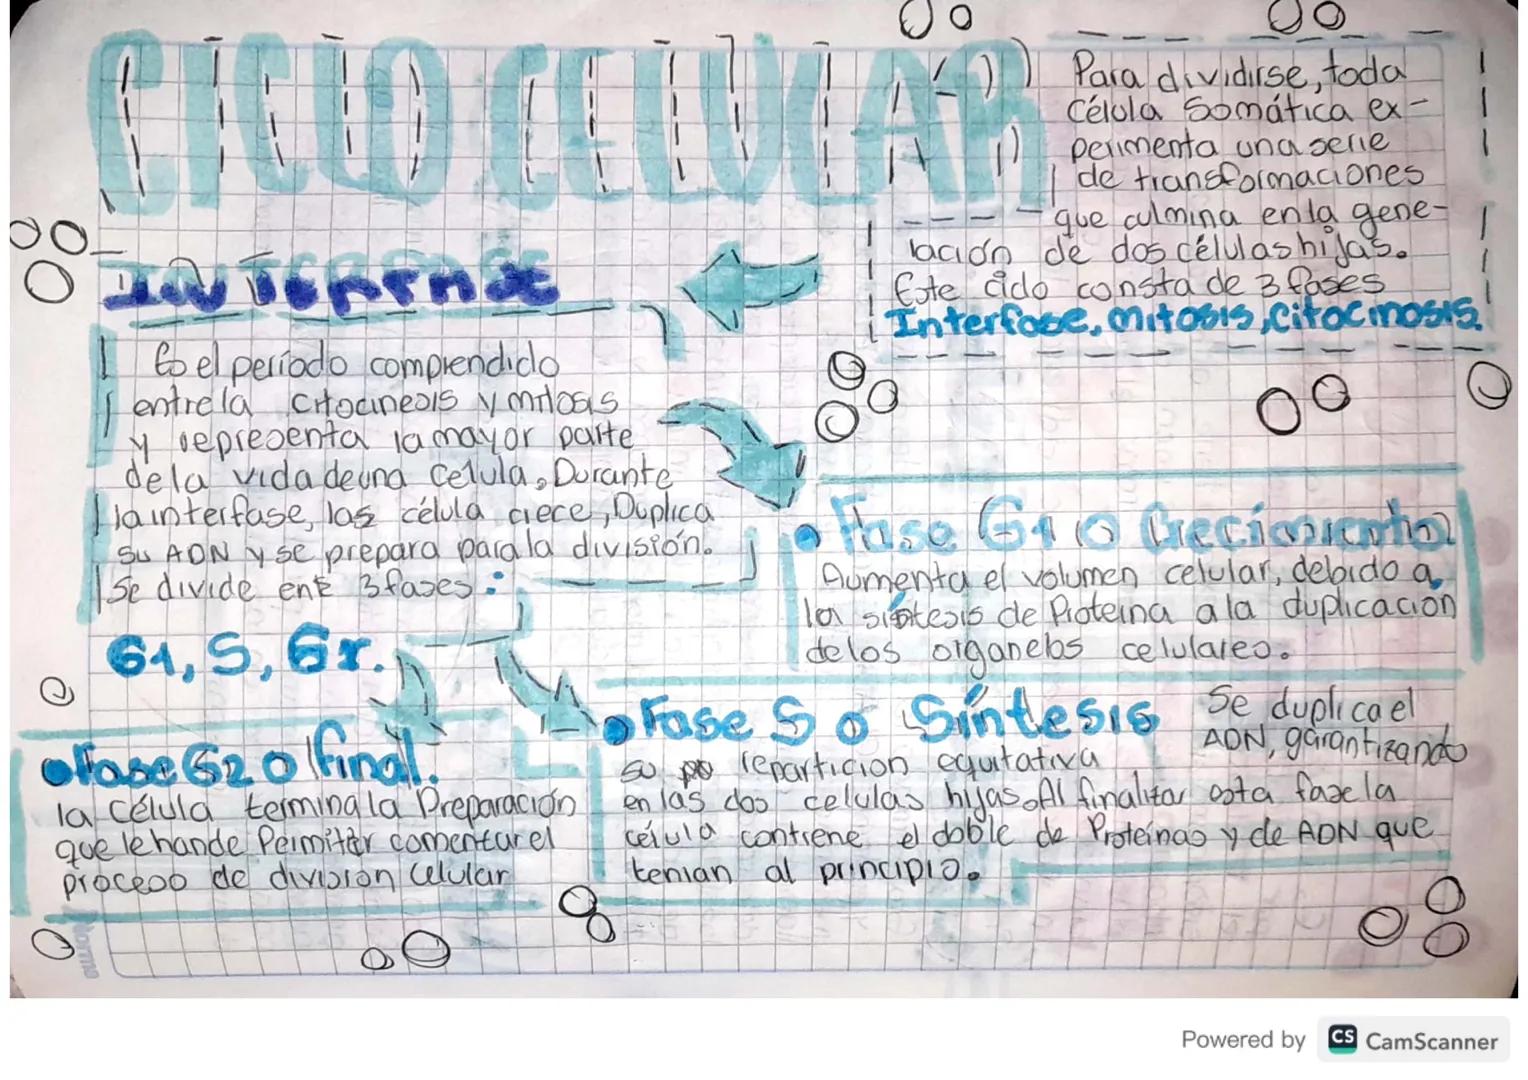 CICLO CELULAR
Para dividirse, toda
célula Somática ex-
perimenta una serie
de transformaciones
que culmina en la gene-
ración de dos células hijas.
Este ciclo consta de 3 fases
Interfase, mitosis, citocinosis.
INTERFASE
Es el período comprendido
entre la citocinesis y mitosis
y representa la mayor parte
de la vida de una celula, Durante
la interfase, las célula crece, Duplica
su ADN y se prepara para la división.
Se divide ent 3 fases:
G1, S, G2.
Fase G1 o Crecimiento
Aumenta el volumen celular, debido a
la síntesis de Proteina a la duplicación
de los organelos celulares.
Fase S o Síntesis
Se duplica el
ADN, garantizando
su repartición equitativa
en las dos celulas hijas. Al finalizar esta fase la
célula contiene el doble de Proteínas y de ADN que
tenian al principio.
Fase G2 o final.
la célula termina la Preparación
que le han de Permitir comenzar el
proceso de división Celular
Norma
Powered by CS CamScanner